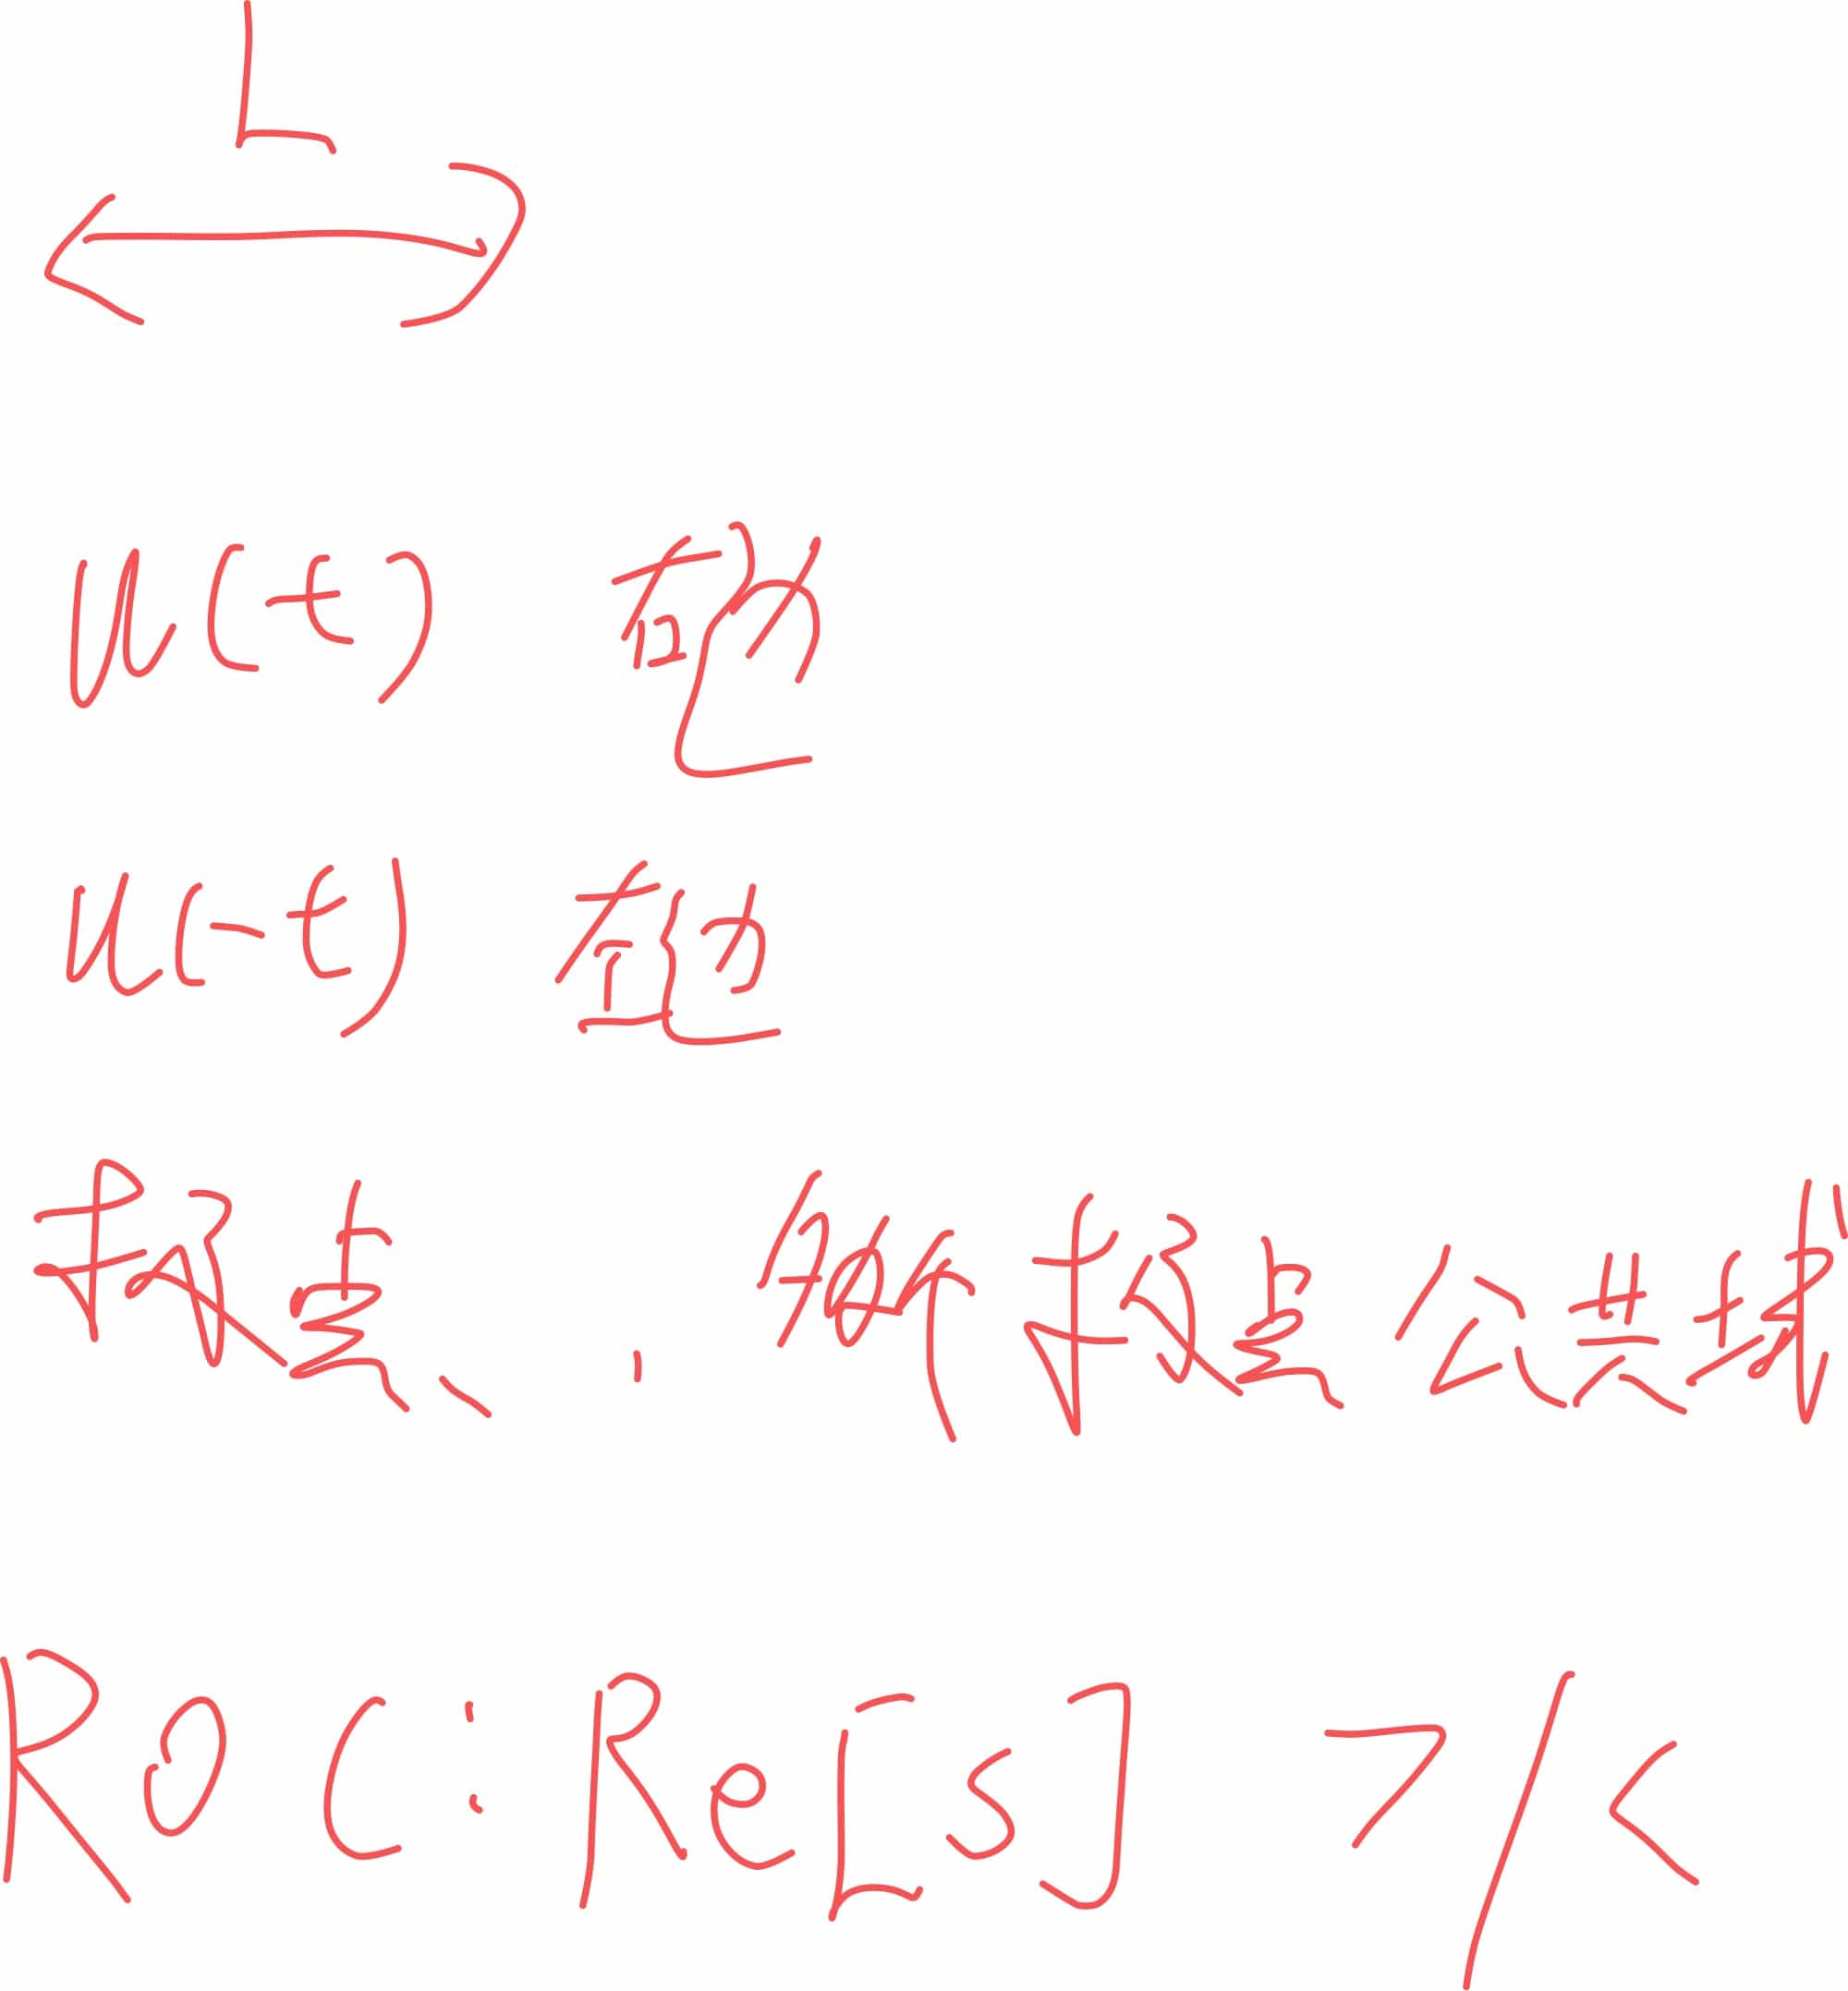 L
u(t) 右边
u(-t) 左边
极点、: 解极点公共域
ROC: Re[s] >/<